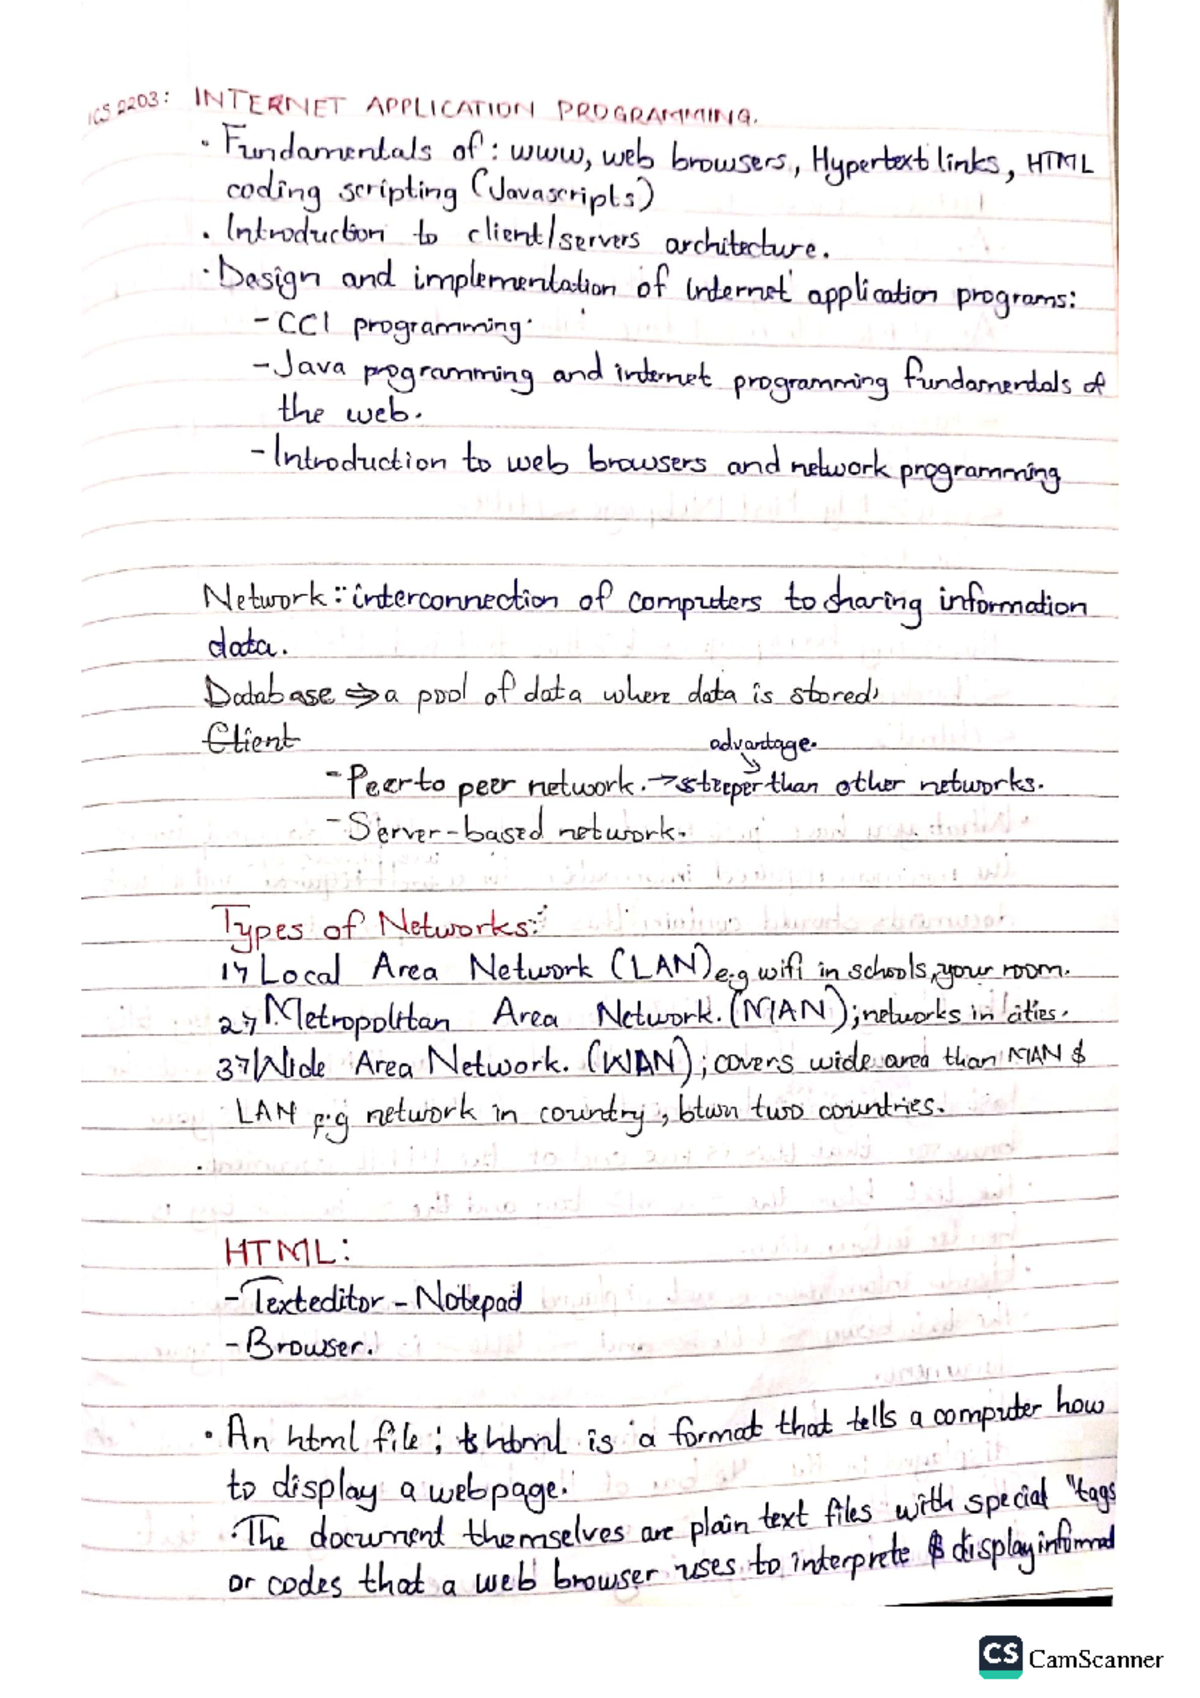 ICS 2203: INTERNET APPLICATION PROGRAMMING.
• Fundamentals of: www, web browsers, Hypertext links, HTML
coding scripting (Javascripts)
• Introduction to client/servers architecture.
• Design and implementation of internet application programs:
- CCI programming.
- Java programming and internet programming fundamentals of
the web.
- Introduction to web browsers and network programming
Network: interconnection of computers to sharing information
data.
Database ⇒ a pool of data where data is stored.
Client
advantage.
- Peer to peer network. → than other networks.
- Server-based network.
Types of Networks:
1. Local Area Network (LAN) e.g wifi in schools, your room.
2. Metropolitan Area Network. (MAN); networks in cities.
3. Wide Area Network. (WAN); covers wide area than MAN &
LAN e.g network in country, btwn two countries.
HTML:
- Texteditor - Notepad
- Browser.
• An html file; html is a format that tells a computer how
to display a webpage.
• The document themselves are plain text files with special "tags
or codes that a web browser uses to interprete & display informat
CS CamScanner